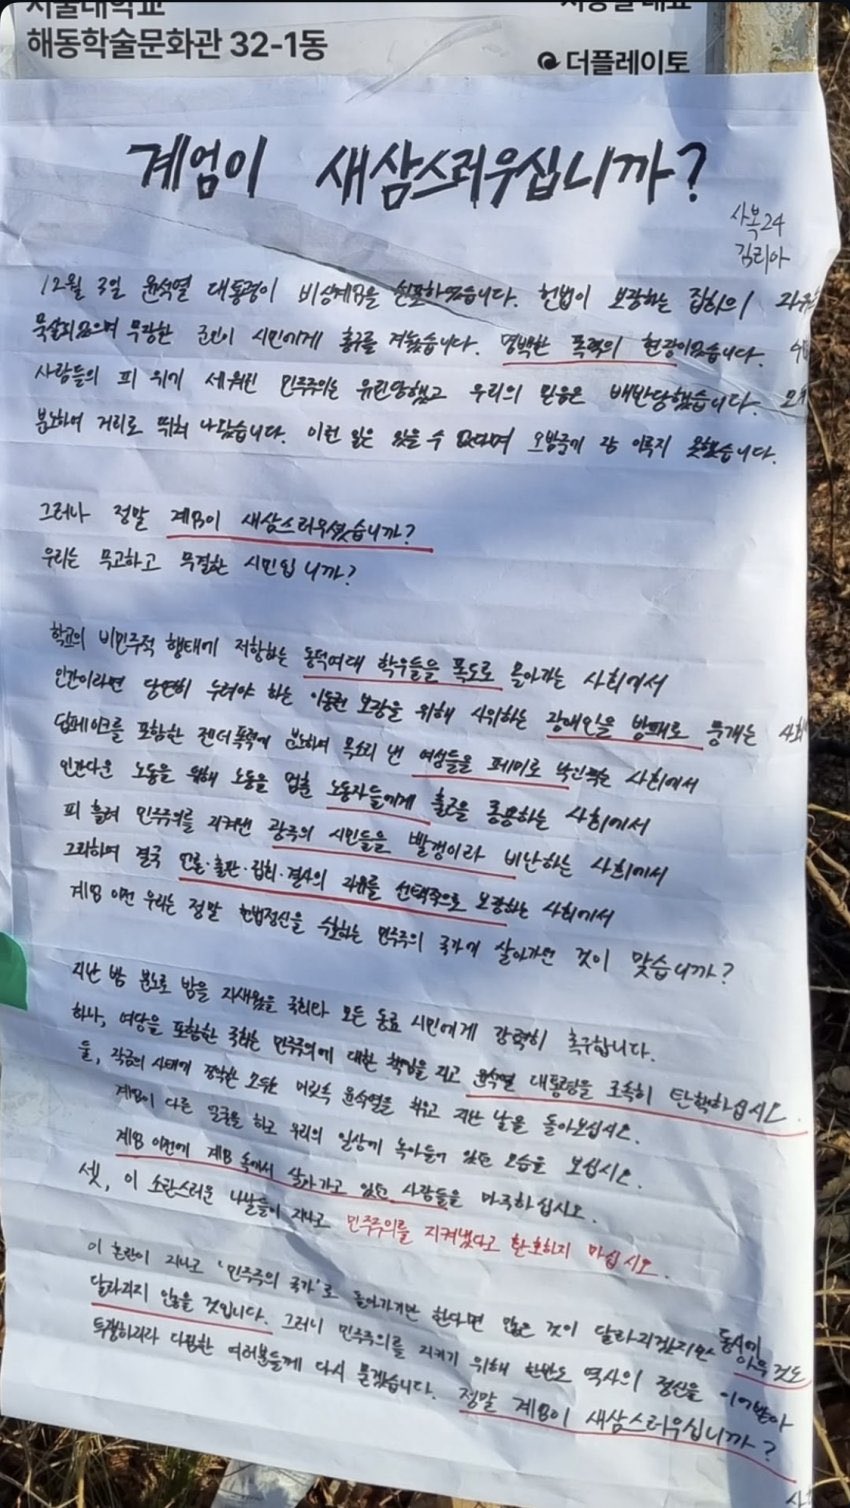 서울대학교
해동학술문화관 32-1동
더플레이토
계엄이 새삼스러우십니까?
사복24
김리아
12월 3일 윤석열 대통령이 비상계엄을 선포하였습니다. 헌법이 보장하는 집회의 자유
묵살되었으며 무장한 군인이 시민에게 총구를 겨눴습니다. 명백한 폭력의 현장이었습니다.
사람들의 피 위에 세워진 민주주의는 유린당했고 우리의 믿음은 배반당했습니다.
분노하여 거리로 뛰쳐 나갔습니다. 이런 일은 있을 수 없다며 오밤중에 잠 이루지 못했습니다.
그러나 정말 계엄이 새삼스러우셨습니까?
우리는 무고하고 무결한 시민입니까?
학교의 비민주적 행태에 저항하는 동덕여대 학우들을 폭도로 몰아가는 사회에서
인간이라면 당연히 누려야 하는 이동권 보장을 위해 시위하는 장애인을 방패로 뭉개는 사회
딥페이크를 포함한 젠더폭력에 분노하며 목소리 낸 여성들을 페미로 낙인찍는 사회에서
인간다운 노동을 위해 노동을 멈춘 노동자들에게 출근을 종용하는 사회에서
피 흘려 민주주의를 지켜낸 광주의 시민들을 빨갱이라 비난하는 사회에서
그리하여 결국 언론·출판·집회·결사의 자유를 선택적으로 보장하는 사회에서
계엄 이전 우리는 정말 헌법정신을 수호하는 민주주의 국가에 살아가던 것이 맞습니까?
지난 밤 분노로 밤을 지새웠을 국회와 모든 동료 시민에게 강력히 촉구합니다.
하나, 여당을 포함한 국회는 민주주의에 대한 책임을 지고 윤석열 대통령을 조속히 탄핵하십시오.
둘, 작금의 사태에 경악한 모두는 머릿속 윤석열을 치우고 지난 날을 돌아보십시오.
계엄이 다른 얼굴을 하고 우리의 일상에 녹아들어 있던 모습을 보십시오.
계엄 이전에 계엄 속에서 살아가고 있던 사람들을 마주하십시오.
셋, 이 소란스러운 나날들이 지나고 민주주의를 지켜냈다고 환호하지 마십시오.
이 혼란이 지나고 '민주주의 국가'로 돌아가기만 한다면 많은 것이 달라지겠지만 동시에 아무 것도
달라지지 않을 것입니다. 그러니 민주주의를 지키기 위해 한반도 역사의 정신을 이어받아
투쟁하리라 다짐한 여러분들께 다시 묻겠습니다. 정말 계엄이 새삼스러우십니까?